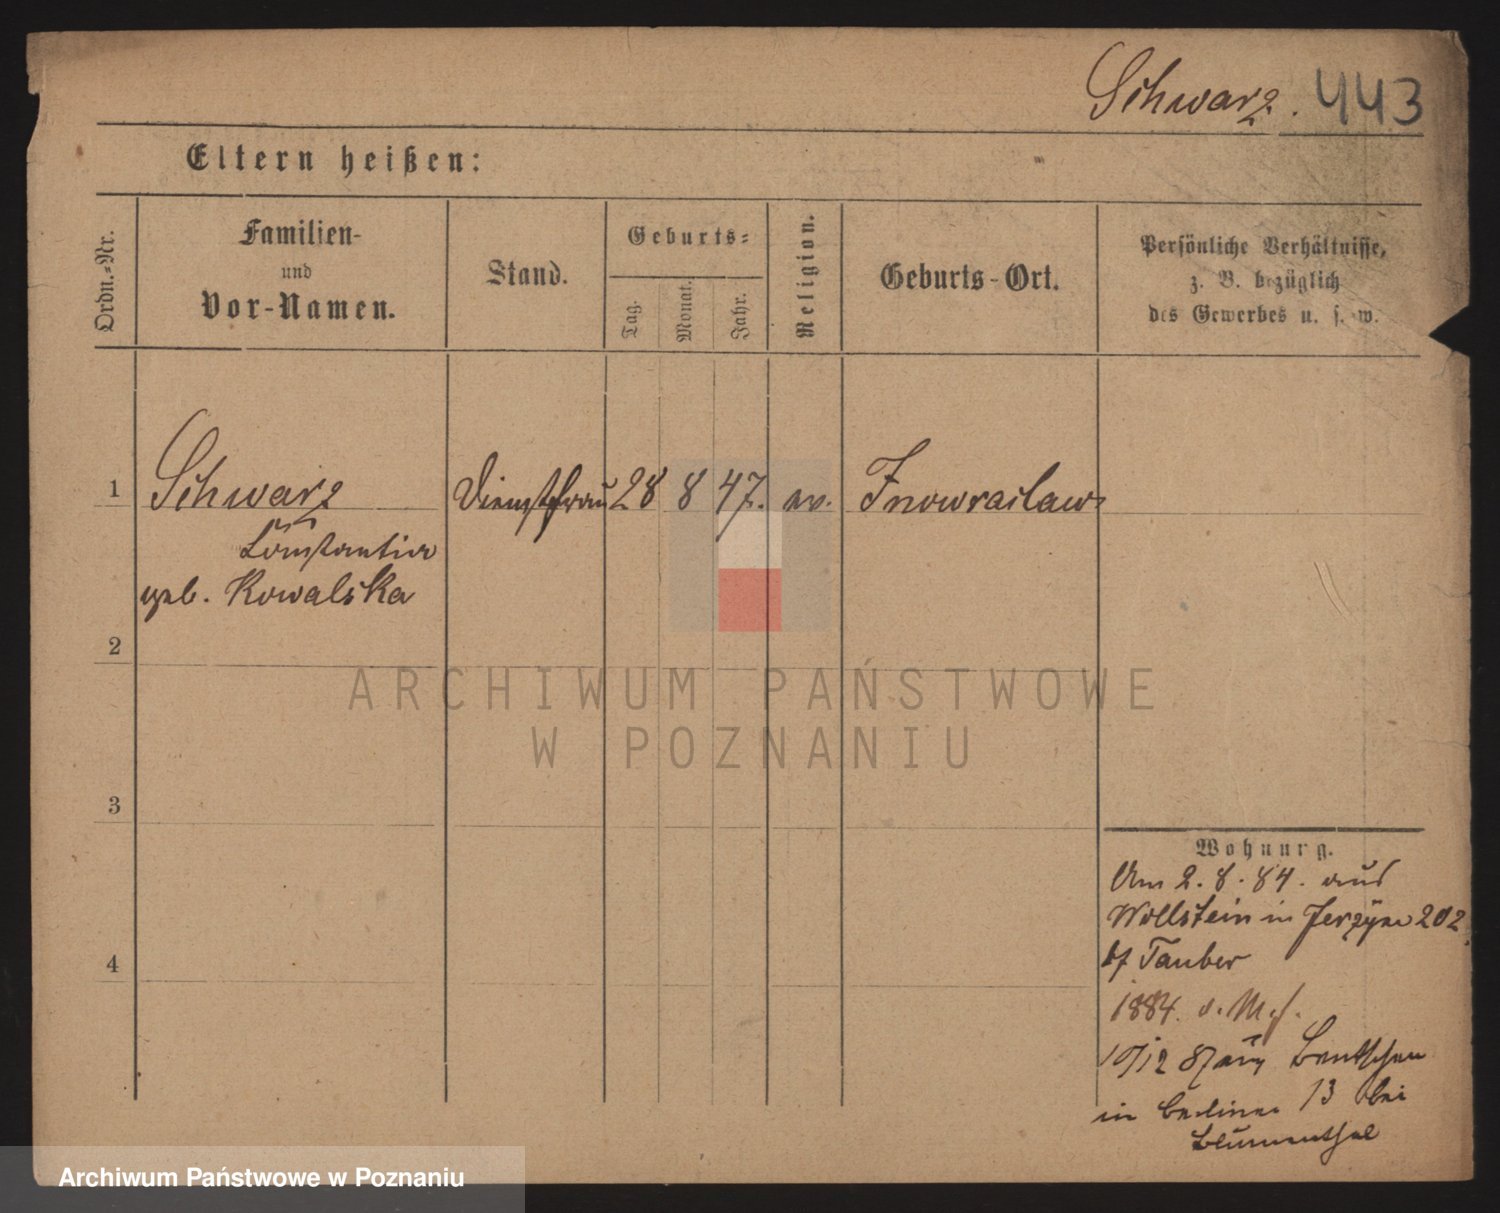 Schwarz. 443
Eltern heißen:
Ordn.=Nr.
Familien-
und
Vor-Namen.
Stand.
Geburts=
Tag.
Monat.
Jahr.
Religion.
Geburts-Ort.
Persönliche Verhältnisse,
z. B. bezüglich
des Gewerbes u. s. w.
1 Schwarz Dienstfrau 28 8 47. ev. Inowraclaw
Constantia
geb. Kowalska
2
ARCHIWUM PAŃSTWOWE
W POZNANIU
3
4
Wohnung.
Am 2. 8. 84. aus
Wollstein in Jerzyce 202
bf Tauber
1884.
10/12 87 aus Bentschen
in Berliner 13 bei
Blumenthal
Archiwum Państwowe w Poznaniu